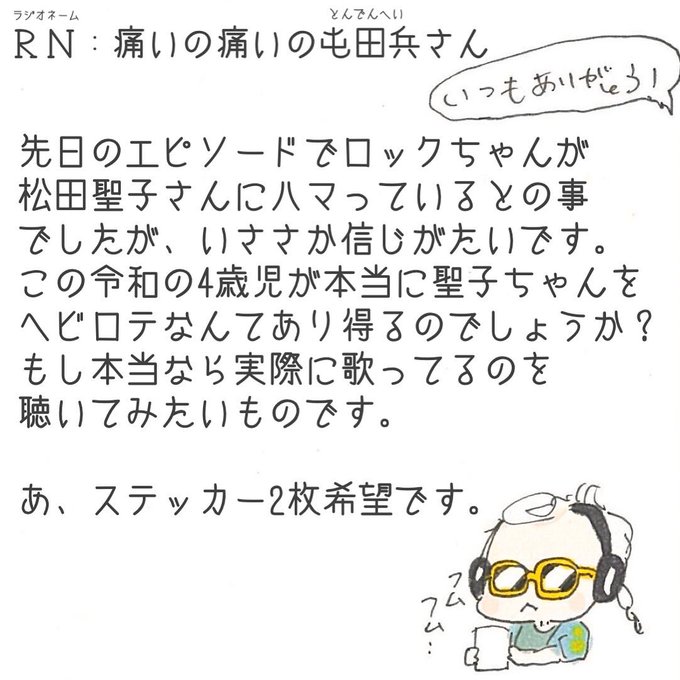 ラジオネーム
とんでんへい
RN：痛いの痛いの屯田兵さん
いつもありがとう！
先日のエピソードでロックちゃんが
松田聖子さんにハマっているとの事
でしたが、いささか信じがたいです。
この令和の4歳児が本当に聖子ちゃんを
ヘビロテなんてあり得るのでしょうか？
もし本当なら実際に歌ってるのを
聴いてみたいものです。
あ、ステッカー2枚希望です。
フム
フム…